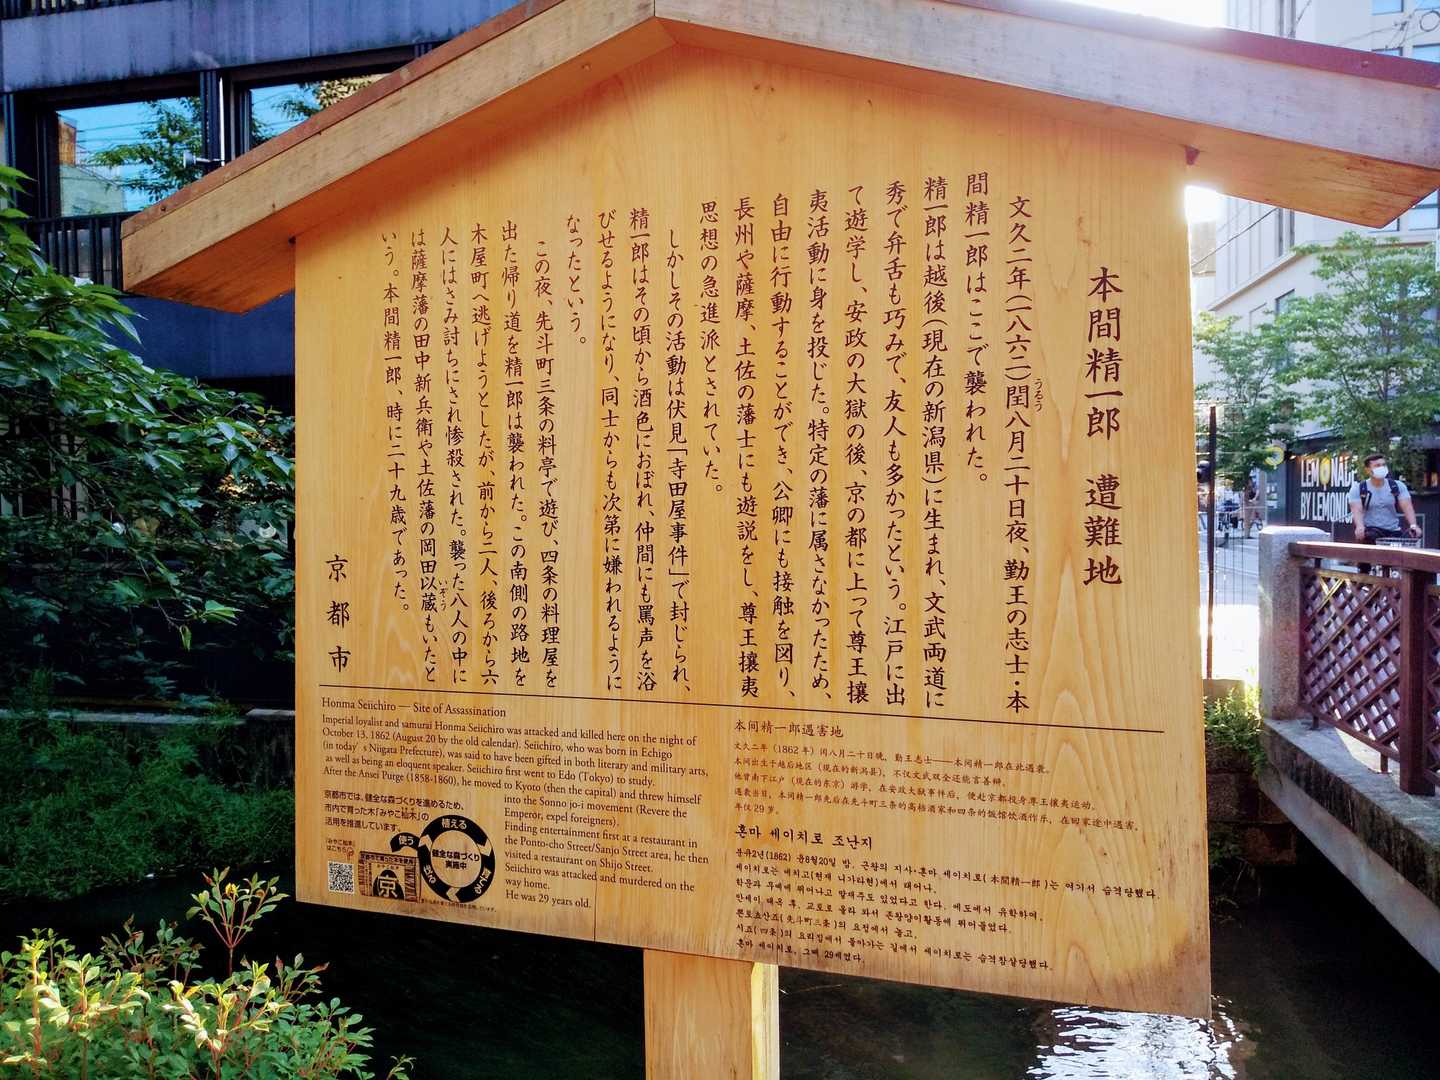 本間精一郎 遭難地
文久二年(一八六二)閏八月二十日夜、勤王の志士・本
うるう
間精一郎はここで襲われた。
精一郎は越後(現在の新潟県)に生まれ、文武両道に
秀で弁舌も巧みで、友人も多かったという。江戸に出
て遊学し、安政の大獄の後、京の都に上って尊王攘
夷活動に身を投じた。特定の藩に属さなかったため、
自由に行動することができ、公卿にも接触を図り、
長州や薩摩、土佐の藩士にも遊説をし、尊王攘夷
思想の急進派とされていた。
しかしその活動は伏見「寺田屋事件」で封じられ、
精一郎はその頃から酒色におぼれ、仲間にも罵声を浴
びせるようになり、同士からも次第に嫌われるように
なったという。
この夜、先斗町三条の料亭で遊び、四条の料理屋を
出た帰り道を精一郎は襲われた。この南側の路地を
木屋町へ逃げようとしたが、前から二人、後ろから六
人にはさみ討ちにされ惨殺された。襲った八人の中に
は薩摩藩の田中新兵衛や土佐藩の岡田以蔵もいたと
いぞう
いう。本間精一郎、時に二十九歳であった。
京都市
Honma Seiichiro — Site of Assassination
Imperial loyalist and samurai Honma Seiichiro was attacked and killed here on the night of
October 13, 1862 (August 20 by the old calendar). Seiichiro, who was born in Echigo
(in today's Niigata Prefecture), was said to have been gifted in both literary and military arts,
as well as being an eloquent speaker. Seiichiro first went to Edo (Tokyo) to study.
After the Ansei Purge (1858-1860), he moved to Kyoto (then the capital) and threw himself
into the Sonno jo-i movement (Revere the
Emperor, expel foreigners).
Finding entertainment first at a restaurant in
the Ponto-cho Street/Sanjo Street area, he then
visited a restaurant on Shijo Street.
Seiichiro was attacked and murdered on the
way home.
He was 29 years old.
京都市では、健全な森づくりを進めるため、
市内で育った木「みやこ杣木」の
活用を推進しています。
「みやこ杣木」
はこちら
植える
育てる
使う
健全な森づくり
実施中
京
本间精一郎遇害地
文久二年（1862年）闰八月二十日晚，勤王志士——本间精一郎在此遇袭。
本间出生于越后地区（现在的新潟县），不仅文武双全还能言善辩。
他曾南下江户（现在的东京）游学，在安政大狱事件后，便赴京都投身尊王攘夷运动。
遇袭当日，本间精一郎先后在先斗町三条的高档酒家和四条的饭馆饮酒作乐，在回家途中遇害，
年仅29岁。
혼마 세이치로 조난지
분큐2년(1862) 윤8월20일 밤, 근왕의 지사・혼마 세이치로(本間精一郎)는 여기서 습격당했다.
세이치로는 에치고(현재 니가타현)에서 태어나,
학문과 무예에 뛰어나고 말재주도 있었다고 한다. 에도에서 유학하여,
안세이 대옥 후, 교토로 올라 와서 존왕양이활동에 뛰어들었다.
폰토쵸산죠(先斗町三条)의 요정에서 놀고,
시죠(四条)의 요리집에서 돌아가는 길에서 세이치로는 습격참살당했다.
혼마 세이치로, 그때 29세였다.
LEMONADE
BY LEMONICA